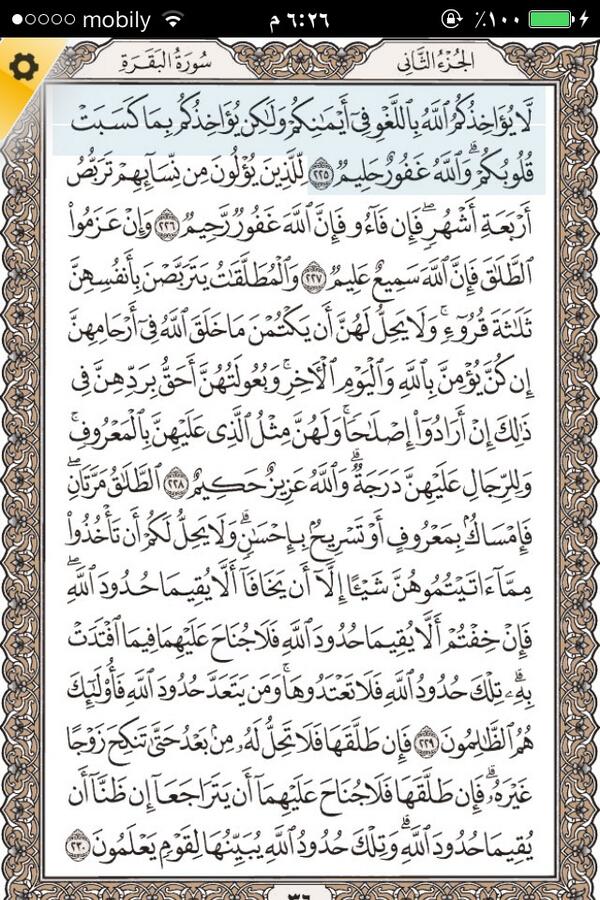 mobily ٦:٢٦ م ٪١٠٠
سُورَةُ البَقَرَةِ الجُزْءُ الثَّانِى
لَّا يُؤَاخِذُكُمُ ٱللَّهُ بِٱللَّغْوِ فِىٓ أَيْمَـٰنِكُمْ وَلَـٰكِن يُؤَاخِذُكُم بِمَا كَسَبَتْ
قُلُوبُكُمْ ۗ وَٱللَّهُ غَفُورٌ حَلِيمٌ ٢٢٥ لِّلَّذِينَ يُؤْلُونَ مِن نِّسَآئِهِمْ تَرَبُّصُ
أَرْبَعَةِ أَشْهُرٍ ۖ فَإِن فَآءُو فَإِنَّ ٱللَّهَ غَفُورٌ رَّحِيمٌ ٢٢٦ وَإِنْ عَزَمُوا۟
ٱلطَّلَـٰقَ فَإِنَّ ٱللَّهَ سَمِيعٌ عَلِيمٌ ٢٢٧ وَٱلْمُطَلَّقَـٰتُ يَتَرَبَّصْنَ بِأَنفُسِهِنَّ
ثَلَـٰثَةَ قُرُوٓءٍ ۚ وَلَا يَحِلُّ لَهُنَّ أَن يَكْتُمْنَ مَا خَلَقَ ٱللَّهُ فِىٓ أَرْحَامِهِنَّ
إِن كُنَّ يُؤْمِنَّ بِٱللَّهِ وَٱلْيَوْمِ ٱلْـَٔاخِرِ ۚ وَبُعُولَتُهُنَّ أَحَقُّ بِرَدِّهِنَّ فِى
ذَٰلِكَ إِنْ أَرَادُوٓا۟ إِصْلَـٰحًا ۚ وَلَهُنَّ مِثْلُ ٱلَّذِى عَلَيْهِنَّ بِٱلْمَعْرُوفِ ۚ
وَلِلرِّجَالِ عَلَيْهِنَّ دَرَجَةٌ ۗ وَٱللَّهُ عَزِيزٌ حَكِيمٌ ٢٢٨ ٱلطَّلَـٰقُ مَرَّتَانِ ۖ
فَإِمْسَاكٌۢ بِمَعْرُوفٍ أَوْ تَسْرِيحٌۢ بِإِحْسَـٰنٍ ۗ وَلَا يَحِلُّ لَكُمْ أَن تَأْخُذُوا۟
مِمَّآ ءَاتَيْتُمُوهُنَّ شَيْـًٔا إِلَّآ أَن يَخَافَآ أَلَّا يُقِيمَا حُدُودَ ٱللَّهِ ۖ
فَإِنْ خِفْتُمْ أَلَّا يُقِيمَا حُدُودَ ٱللَّهِ فَلَا جُنَاحَ عَلَيْهِمَا فِيمَا ٱفْتَدَتْ
بِهِۦ ۗ تِلْكَ حُدُودُ ٱللَّهِ فَلَا تَعْتَدُوهَا ۚ وَمَن يَتَعَدَّ حُدُودَ ٱللَّهِ فَأُو۟لَـٰٓئِكَ
هُمُ ٱلظَّـٰلِمُونَ ٢٢٩ فَإِن طَلَّقَهَا فَلَا تَحِلُّ لَهُۥ مِنۢ بَعْدُ حَتَّىٰ تَنكِحَ زَوْجًا
غَيْرَهُۥ ۗ فَإِن طَلَّقَهَا فَلَا جُنَاحَ عَلَيْهِمَآ أَن يَتَرَاجَعَآ إِن ظَنَّآ أَن
يُقِيمَا حُدُودَ ٱللَّهِ ۗ وَتِلْكَ حُدُودُ ٱللَّهِ يُبَيِّنُهَا لِقَوْمٍ يَعْلَمُونَ ٢٣٠
٣٦